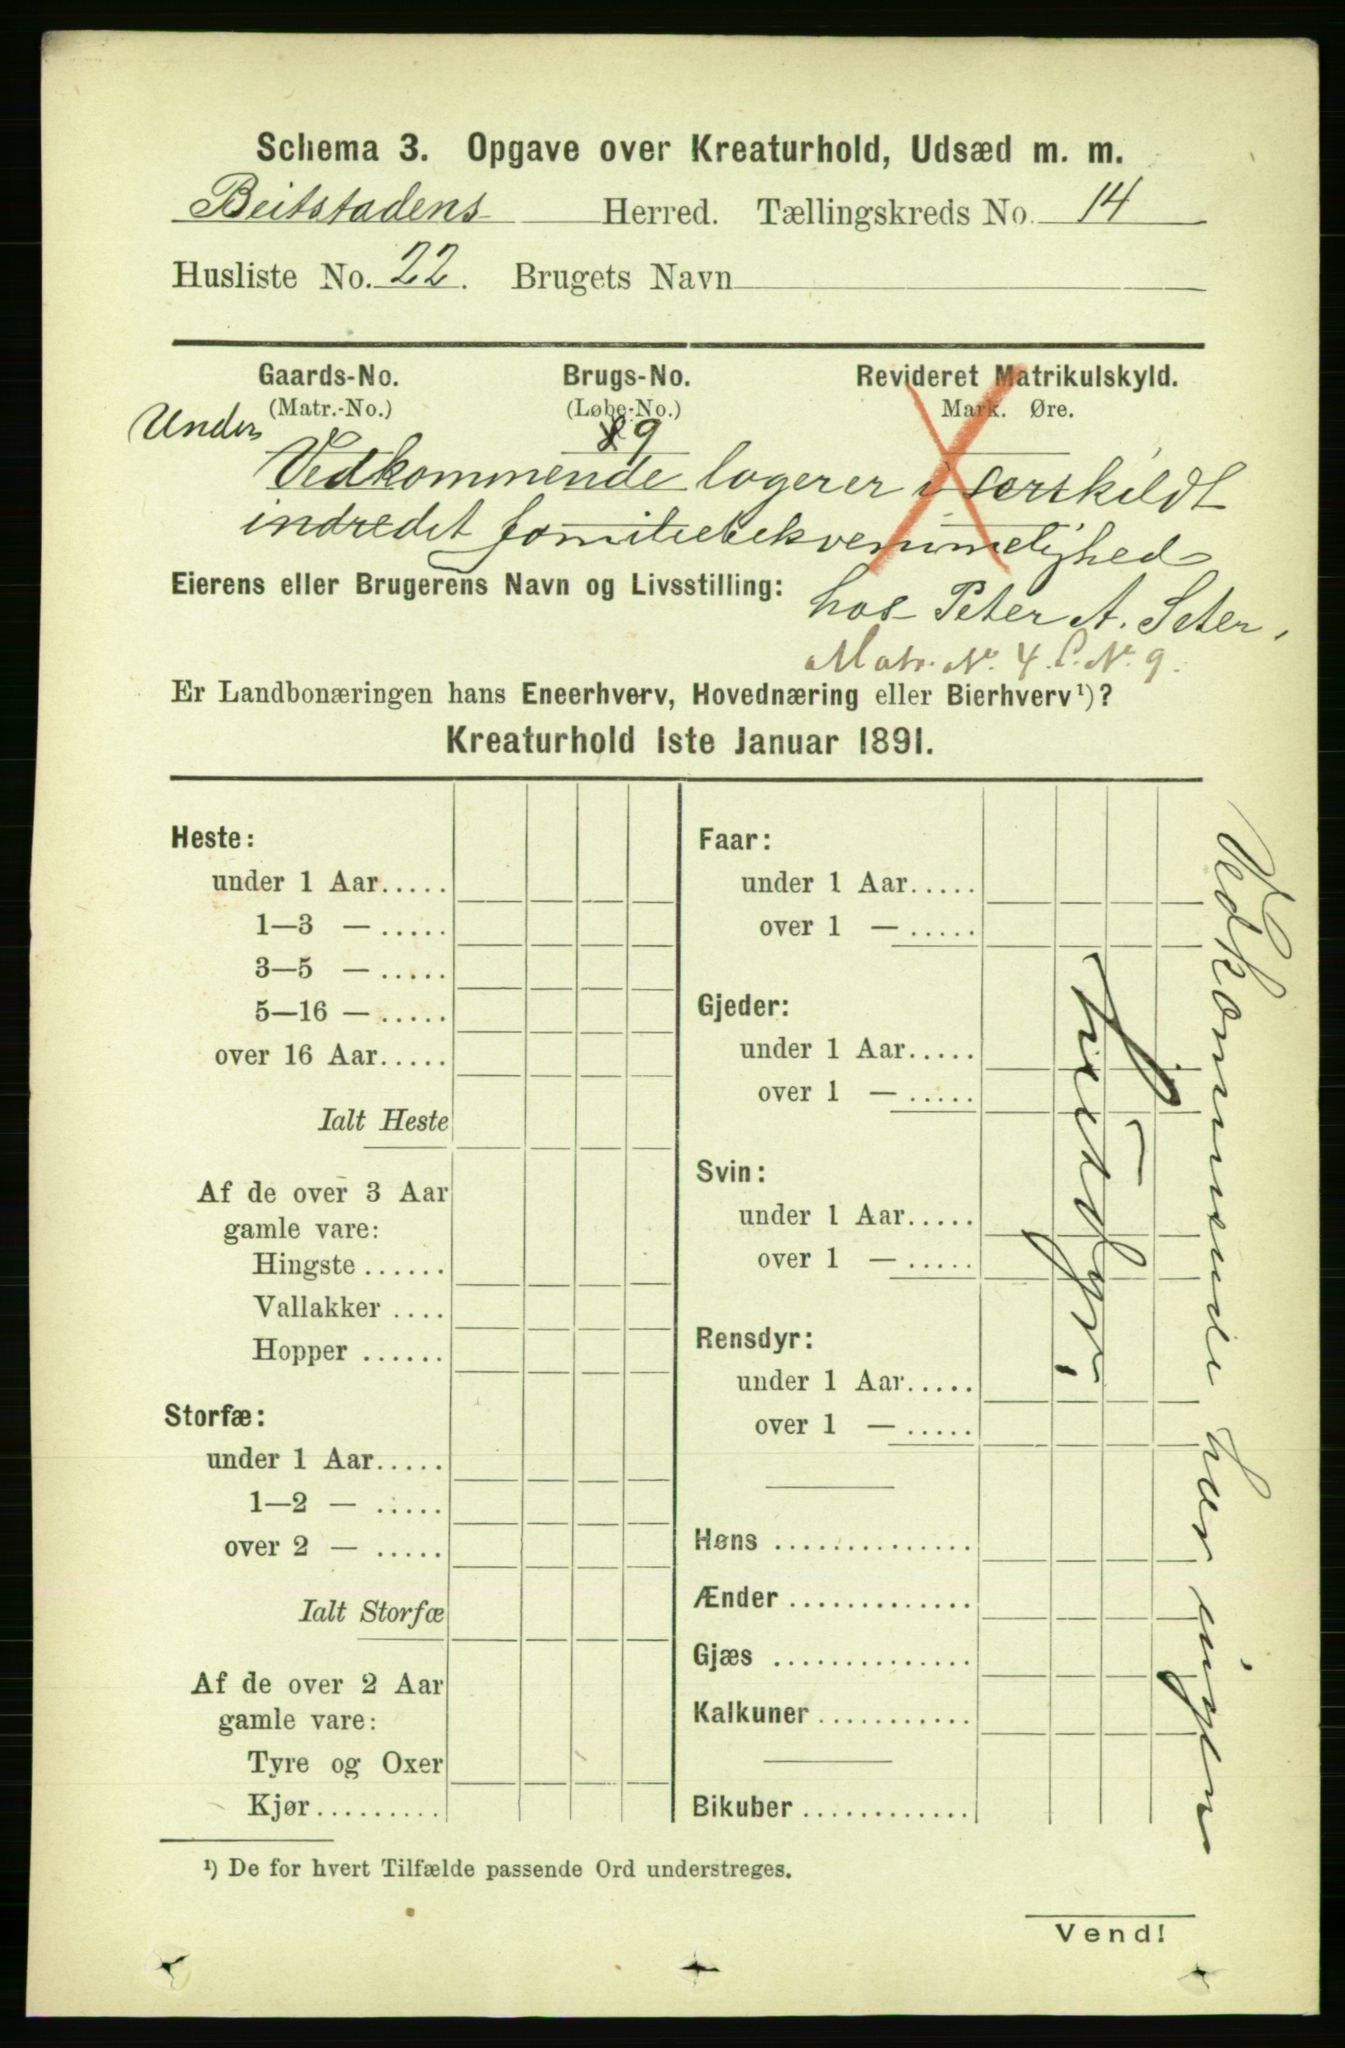 Schema 3. Opgave over Kreaturhold, Udsæd m. m.
Beitstadens Herred. Tællingskreds No. 14
Husliste No. 22. Brugets Navn
Gaards-No. Brugs-No. Revideret Matrikulskyld.
(Matr.-No.) (Løbe-No.) Mark. Øre.
Under 9
Vedkommende logerer i særskildt
indredet familiebekvemmelighed
Eierens eller Brugerens Navn og Livsstilling: hos Peter A. Seter,
Matr. No. 4 L. No. 9.
Er Landbonæringen hans Eneerhverv, Hovednæring eller Bierhverv¹)?
Kreaturhold 1ste Januar 1891.
Heste:
under 1 Aar.....
1—3 — .....
3—5 — .....
5—16 — .....
over 16 Aar.....
Ialt Heste
Af de over 3 Aar
gamle vare:
Hingste ......
Vallakker ....
Hopper ......
Storfæ:
under 1 Aar.....
1—2 — .....
over 2 — .....
Ialt Storfæ
Af de over 2 Aar
gamle vare:
Tyre og Oxer
Kjør.........
Faar:
under 1 Aar.....
over 1 — .....
Gjeder:
under 1 Aar.....
over 1 — .....
Svin:
under 1 Aar.....
over 1 — .....
Rensdyr:
under 1 Aar.....
over 1 — .....
Høns ..............
Ænder .............
Gjæs ..............
Kalkuner ...........
Bikuber ............
Vedkommende har ingen
Huusdyr.
¹) De for hvert Tilfælde passende Ord understreges.
Vend!